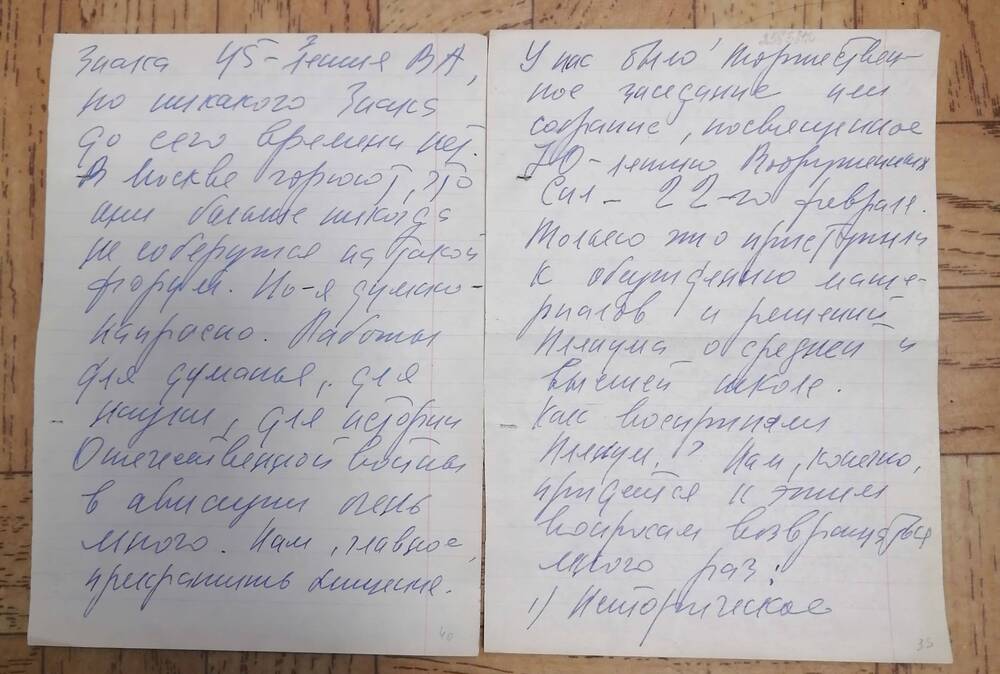 Знака 45-летия ВА,
но никакого Знака
до сего времени нет.
В Москве горюют, что
они больше никогда
не соберутся на такой
форум. Но-я думаю-
напрасно. Работы
для думанья, для
науки, для истории
Отечественной войны
в авиации очень
много. Нам, главное,
прекратить
40
У нас было торжествен-
ное заседание или
собрание, посвященное
70-летию Вооруженных
Сил - 22-го февраля.
Только что приступили
к обсуждению мате-
риалов и решений
Пленума о средней и
высшей школе.
Как восприняли
Пленум? Нам, конечно,
придется к этим
вопросам возвращаться
много раз:
1) Историческое